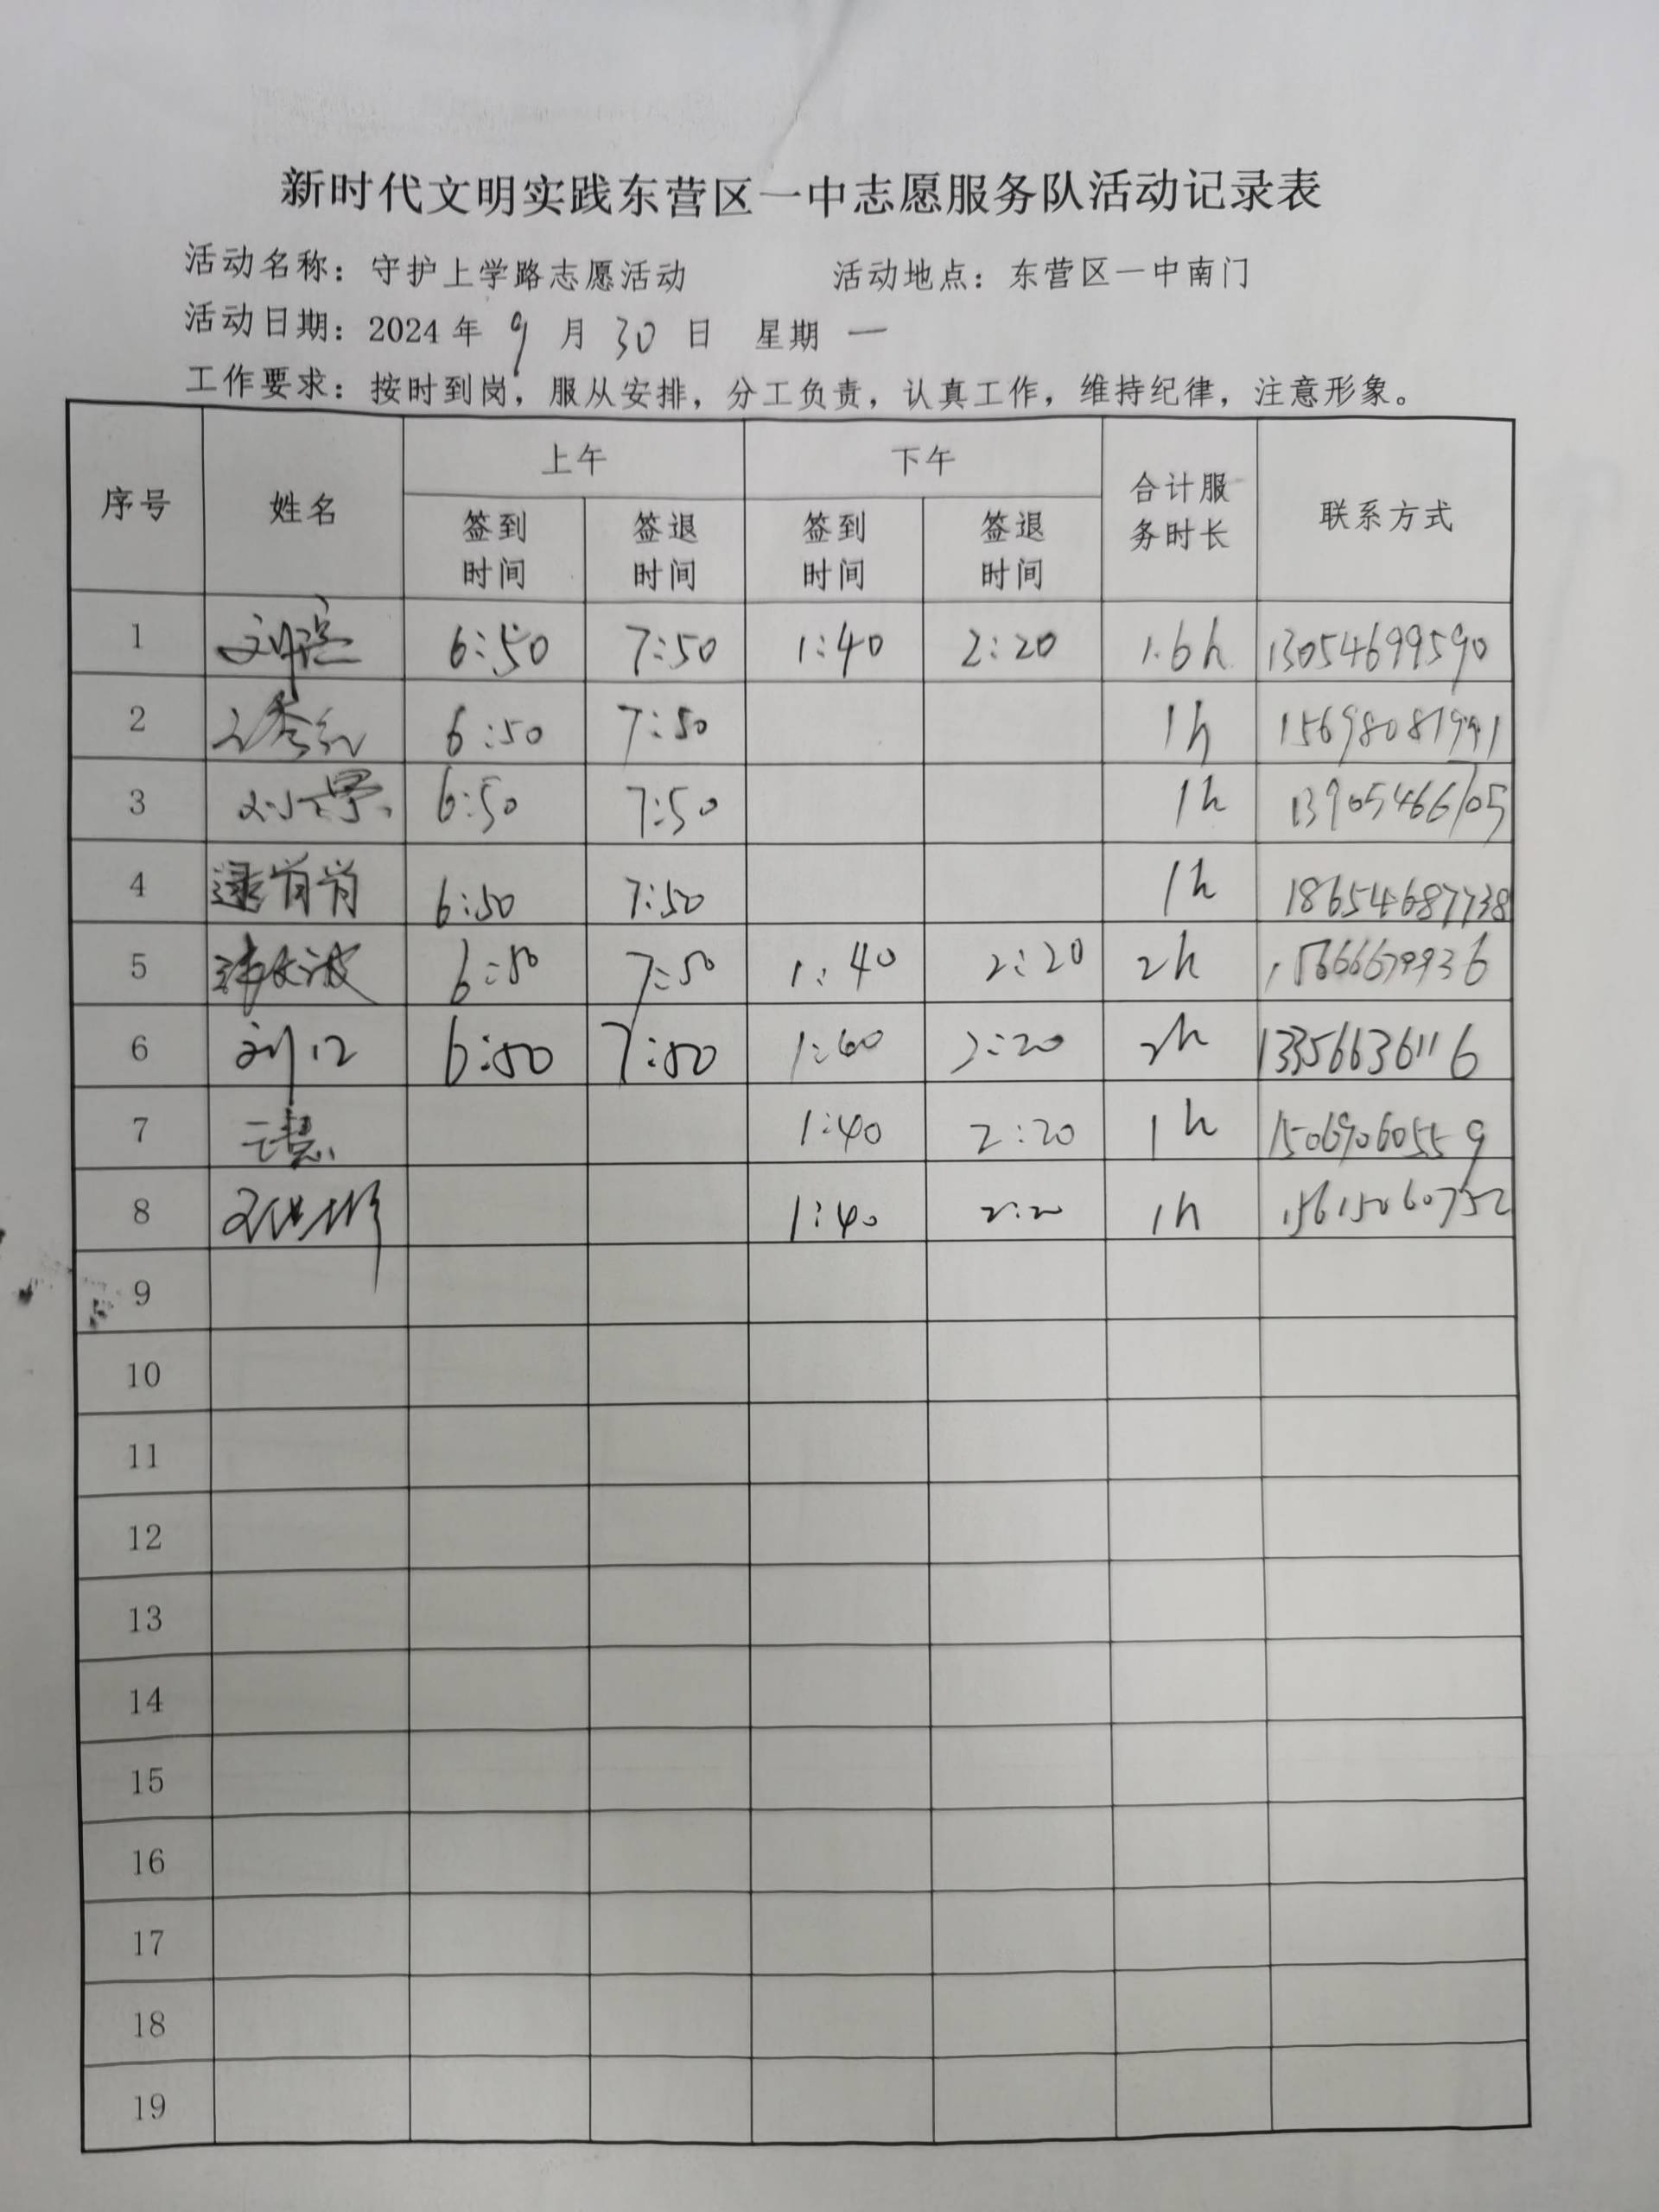 新时代文明实践东营区一中志愿服务队活动记录表
活动名称：守护上学路志愿活动 活动地点：东营区一中南门
活动日期：2024年 9 月 30 日 星期 一
工作要求：按时到岗，服从安排，分工负责，认真工作，维持纪律，注意形象。
序号 姓名 上午 下午 合计服务时长 联系方式
签到时间 签退时间 签到时间 签退时间
1 6:50 7:50 1:40 2:20 1.6h 13054699590
2 6:50 7:50 1h
3 6:50 7:50 1h 13905466705
4 逯肖肖 6:50 7:50 1h 18654687738
5 6:50 7:50 1:40 2:20 2h
6 6:50 7:50 1:40 2:20 2h 13356636116
7 1:40 2:20 1h 15069060559
8 1:40 2:20 1h 15615060752
9
10
11
12
13
14
15
16
17
18
19